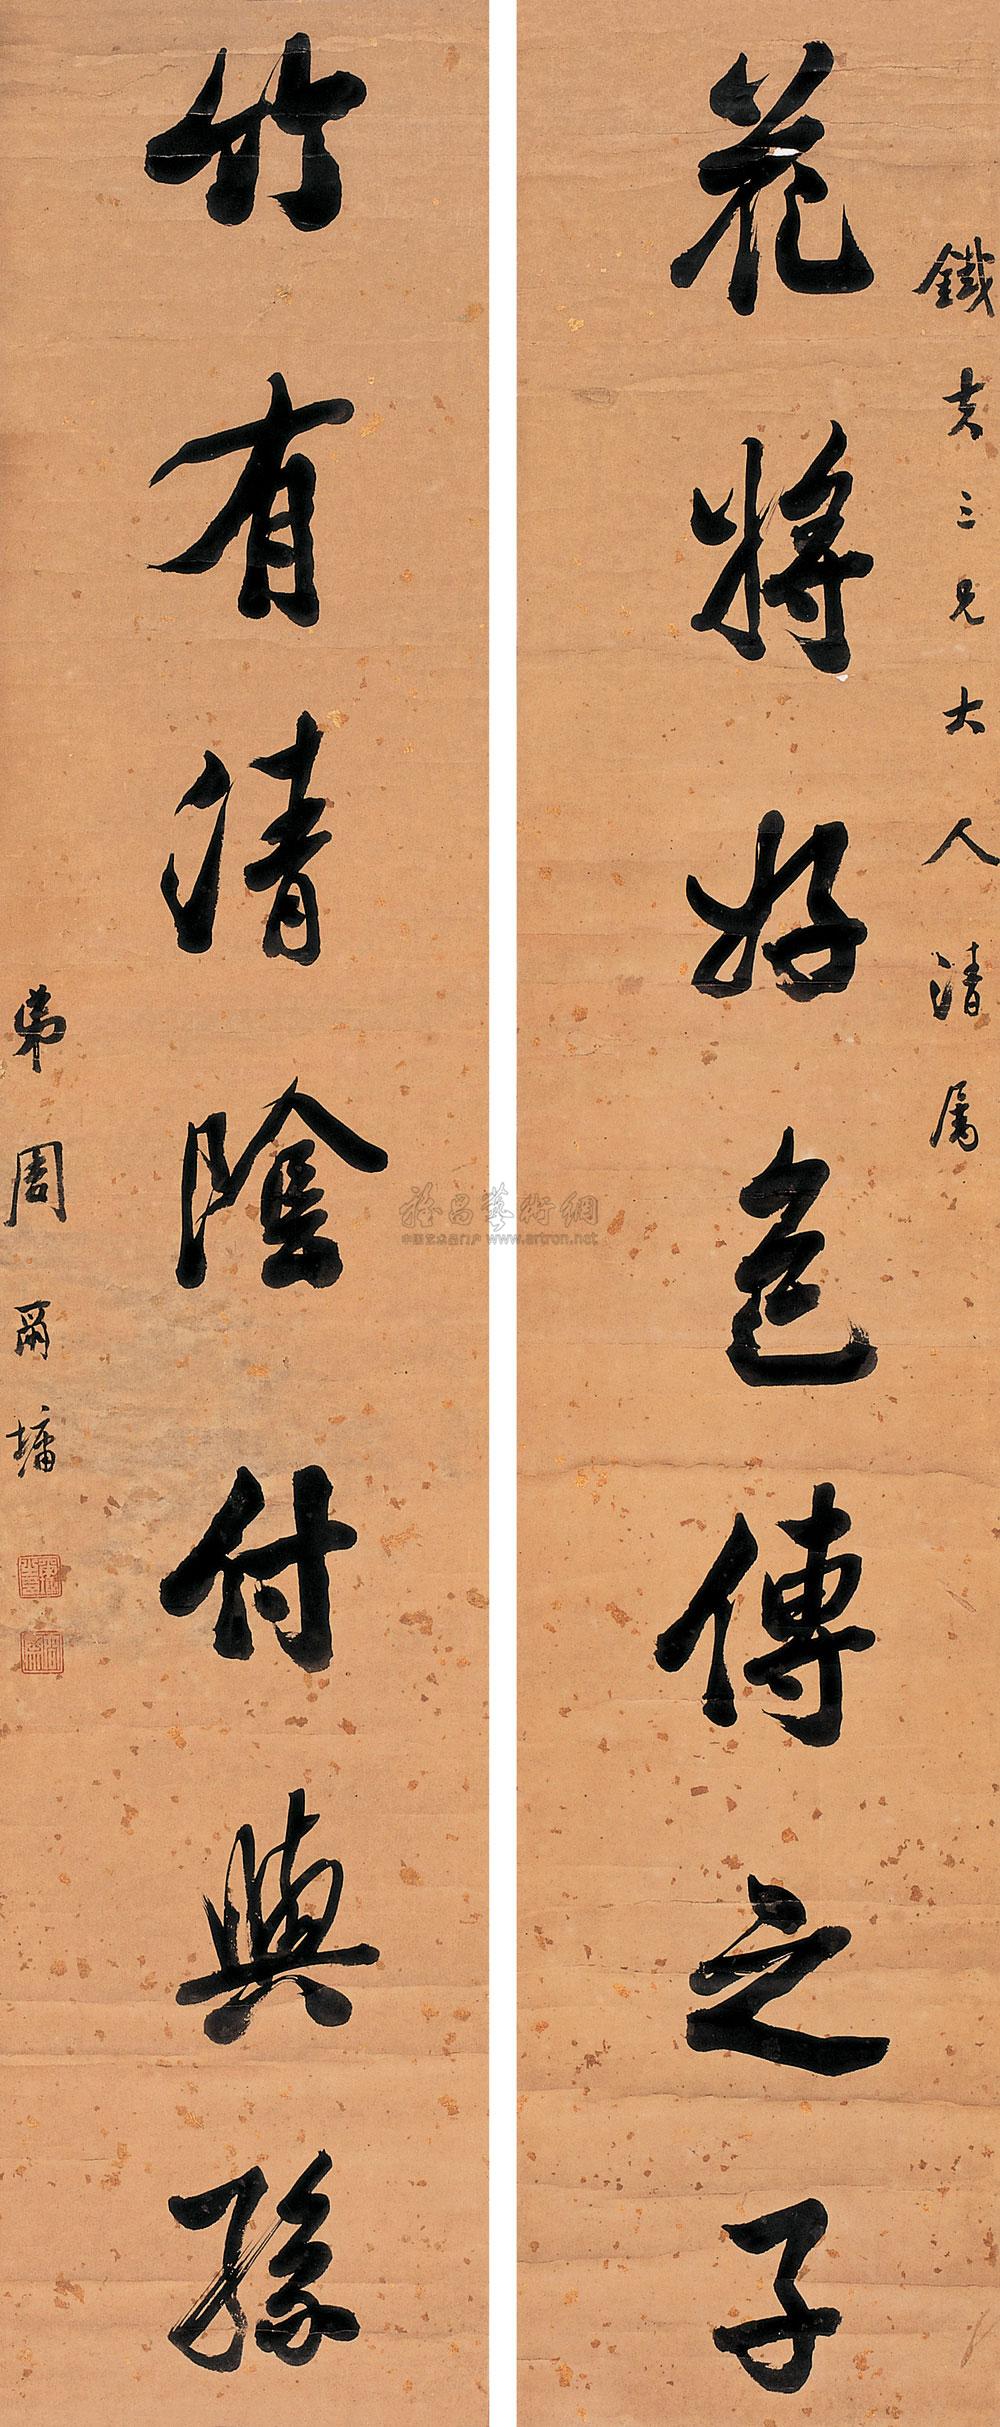 鐵夫三兄大人清属
花將好色傳之子
竹有清陰付與孫
弟周爾墉
雅昌藝術網
中国艺术品门户 www.artron.net